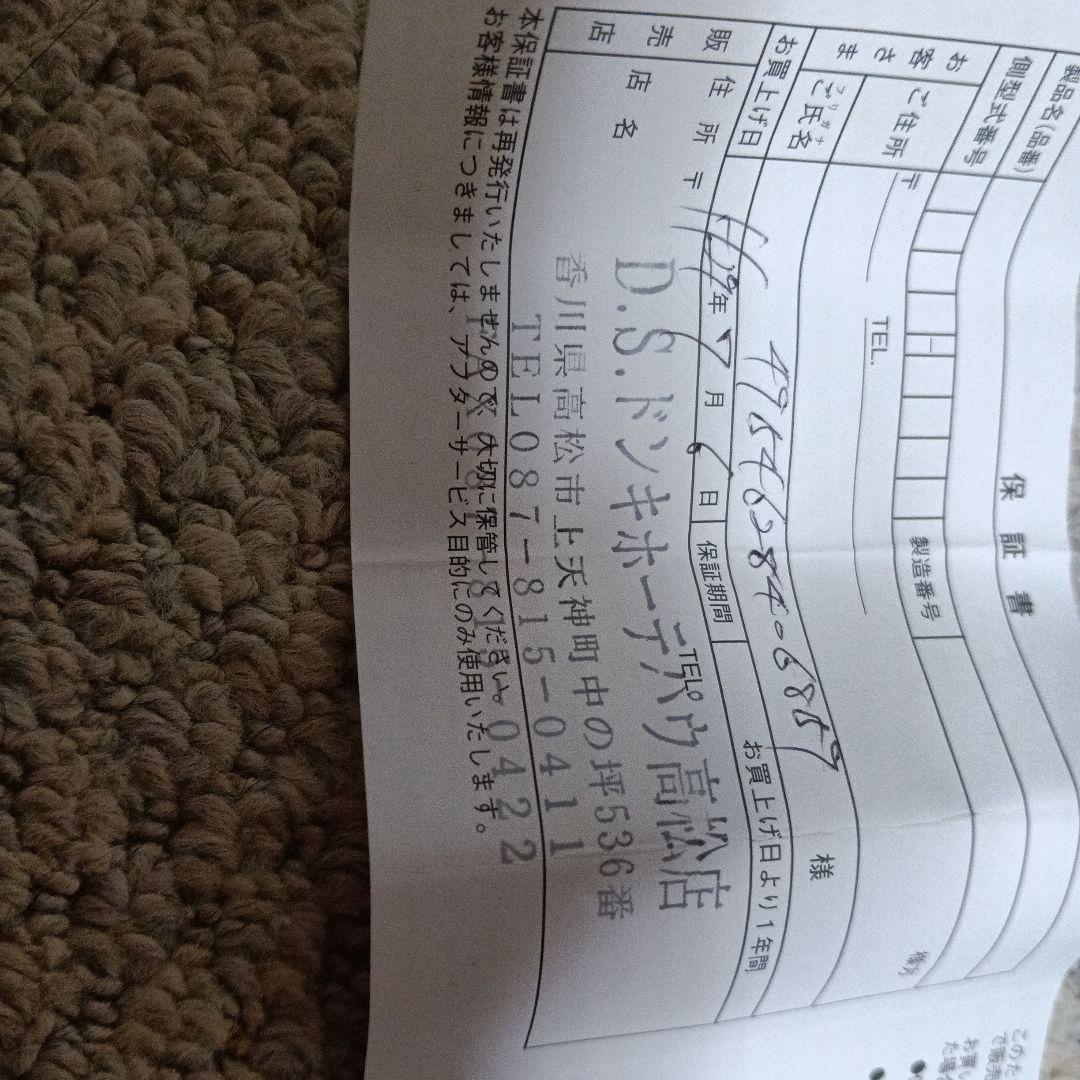 保証書
製品名(品番)
側型式番号
製造番号
お客さま
ご住所
〒
TEL.
フリガナ
ご氏名
様
4954628406859
お買上げ日
年 7 月 6 日
保証期間
お買上げ日より1年間
販売店
住所
〒
TEL
店名
D.S.ドンキホーテパウ高松店
香川県高松市上天神町中の坪536番
TEL087-815-0411
本保証書は再発行いたしませんので大切に保管してください。
お客様情報につきましては、アフターサービス目的にのみ使用いたします。